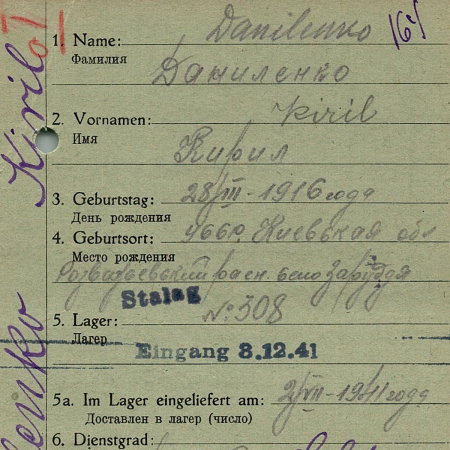 Danilenko 164
1. Name:
Фамилия
Даниленко
2. Vornamen: Kiril
Имя
Кирил
3. Geburtstag: 28/III-1916 года
День рождения
4. Geburtsort: Киевская обл
Место рождения
село Заруддя
Stalag
№ 308
5. Lager:
Лагерь
Eingang 8.12.41
5a. Im Lager eingeliefert am: 2/VII-1941 года
Доставлен в лагерь (число)
6. Dienstgrad:
Kiril